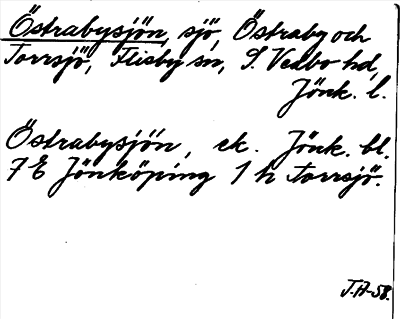 Östrabysjön, sjö, Östraby och
Torrsjö, Flisby sn, S. Vedbo hd,
Jönk. l.
Östrabysjön, ek. Jönk. bl.
7 E Jönköping 1 h Torrsjö.
J.A-58.